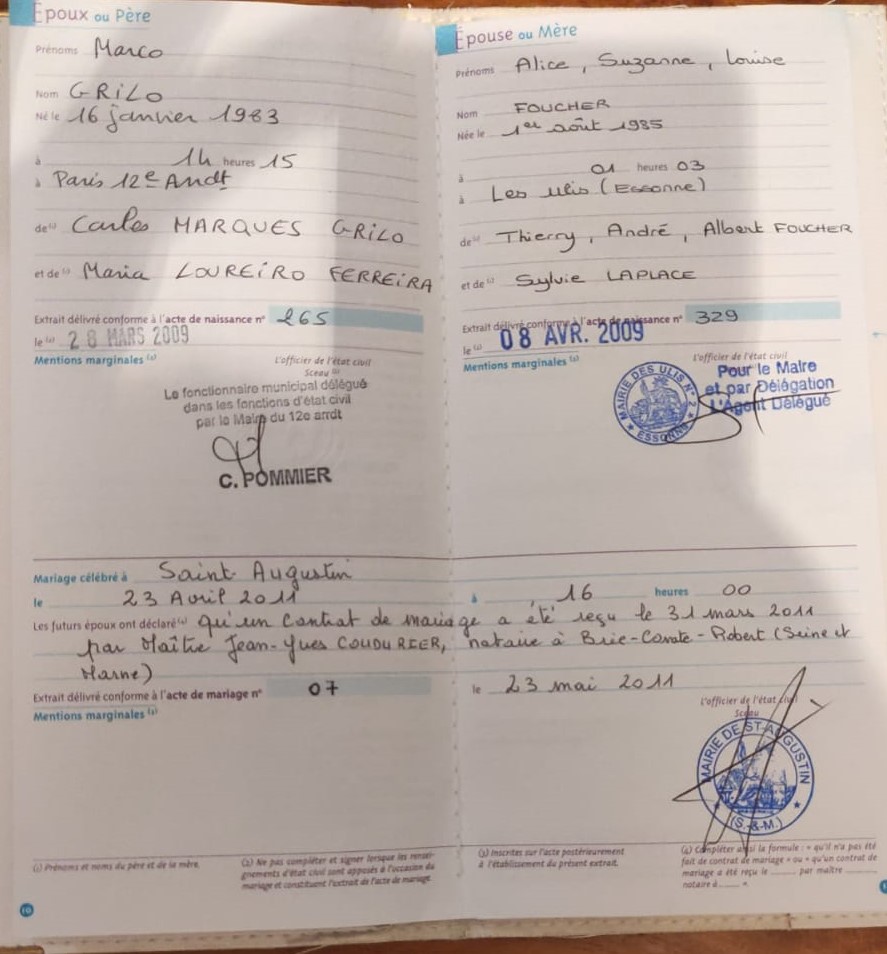 Époux ou Père
Prénoms Marco
Nom GRILO
Né le 16 janvier 1983
à 1h heures 15
à Paris 12e Arrdt
de (1) Carlos MARQUES GRILO
et de (1) Maria LOUREIRO FERREIRA
Extrait délivré conforme à l'acte de naissance n° 265
le (2) 28 MARS 2009
Mentions marginales (3)
L'officier de l'état civil
Sceau (2)
Le fonctionnaire municipal délégué
dans les fonctions d'état civil
par le Maire du 12e arrdt
C. POMMIER
Épouse ou Mère
Prénoms Alice, Suzanne, Louise
Nom FOUCHER
Née le 1er août 1985
à 01 heures 03
à Les Ulis (ESSONNE)
de (1) Thierry, André, Albert FOUCHER
et de (1) Sylvie LAPLACE
Extrait délivré conforme à l'acte de naissance n° 329
le (2) 08 AVR. 2009
Mentions marginales (3)
L'officier de l'état civil
Pour le Maire
et par Délégation
L'Agent Délégué
MAIRIE DES ULIS N° 2
ESSONNE
Mariage célébré à Saint Augustin
le 23 Avril 2011 à 16 heures 00
Les futurs époux ont déclaré (4) qu'un contrat de mariage a été reçu le 31 mars 2011
par Maître Jean-Yves COUDURIER, notaire à Brie-Comte-Robert (Seine et
Marne)
Extrait délivré conforme à l'acte de mariage n° 07 le 23 mai 2011
Mentions marginales (3)
L'officier de l'état civil
Sceau
MAIRIE DE ST-AUGUSTIN
(S.-&-M.)
(1) Prénoms et noms du père et de la mère.
(2) Ne pas compléter et signer lorsque les rensei-
gnements d'état civil sont apposés à l'occasion du
mariage et constituent l'extrait de l'acte de mariage.
(3) Inscrites sur l'acte postérieurement
à l'établissement du présent extrait.
(4) Compléter ainsi la formule : « qu'il n'a pas été
fait de contrat de mariage » ou « qu'un contrat de
mariage a été reçu le ........ par maître ........
notaire à ........ ».
10